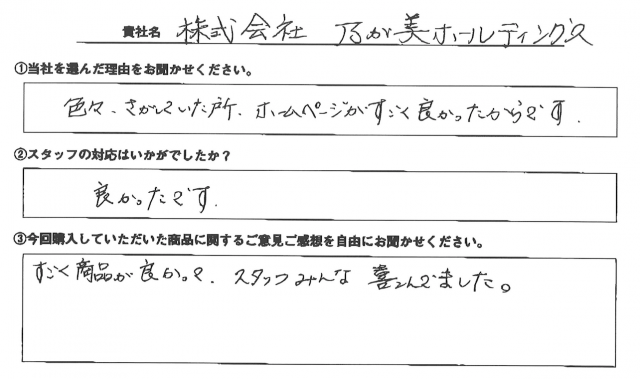 貴社名 株式会社 乃が美ホールディングス
①当社を選んだ理由をお聞かせください。
色々、さがしていた所、ホームページがすごく良かったからです.
②スタッフの対応はいかがでしたか？
良かったです.
③今回購入していただいた商品に関するご意見ご感想を自由にお聞かせください。
すごく商品が良かって、スタッフみんな 喜んでました。